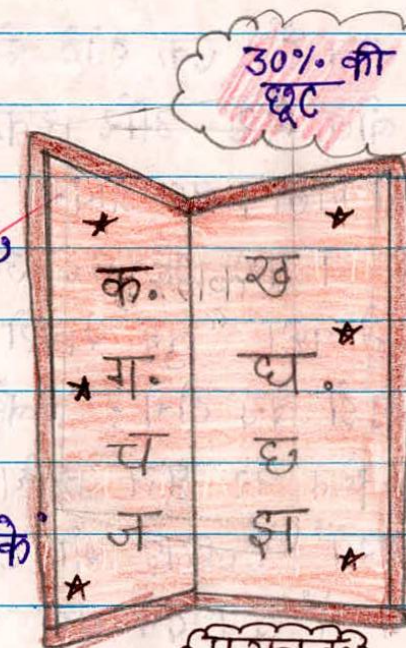 30% की
छूट
क. ख
ग. घ.
च छ
ज झ
के